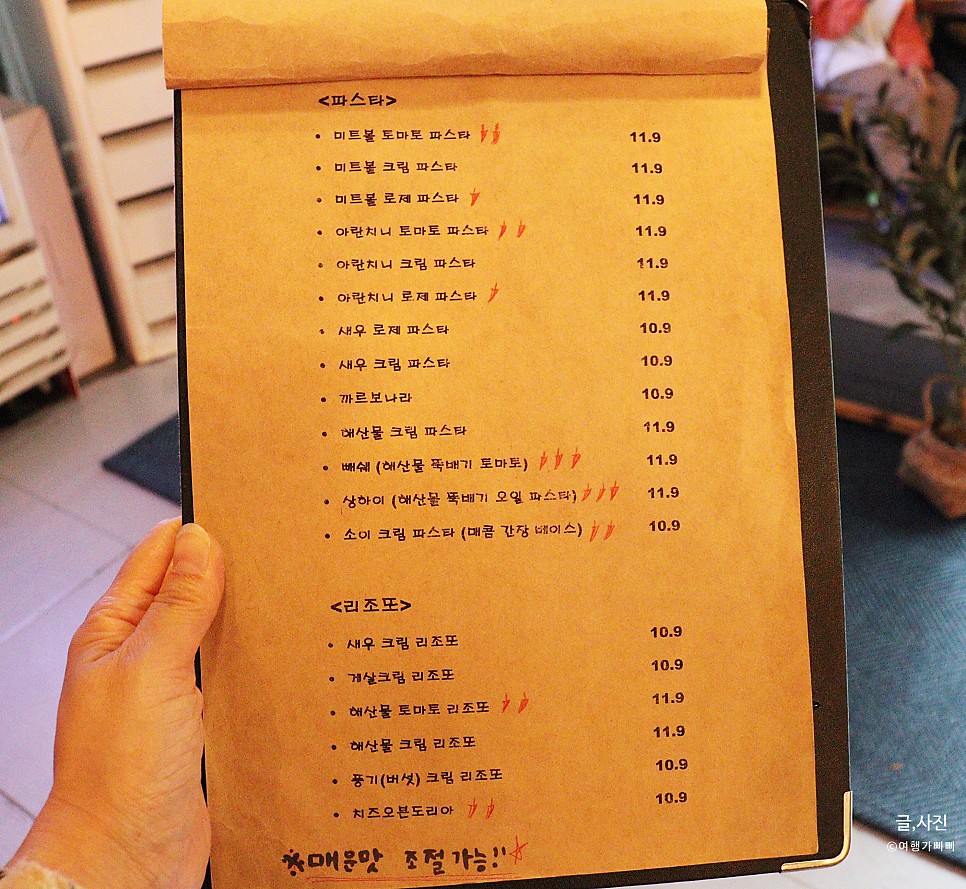 <파스타>
• 미트볼 토마토 파스타 11.9
• 미트볼 크림 파스타 11.9
• 미트볼 로제 파스타 11.9
• 아란치니 토마토 파스타 11.9
• 아란치니 크림 파스타 11.9
• 아란치니 로제 파스타 11.9
• 새우 로제 파스타 10.9
• 새우 크림 파스타 10.9
• 까르보나라 10.9
• 해산물 크림 파스타 11.9
• 빼쉐 (해산물 뚝배기 토마토) 11.9
• 상하이 (해산물 뚝배기 오일 파스타) 11.9
• 소이 크림 파스타 (매콤 간장 베이스) 10.9
<리조또>
• 새우 크림 리조또 10.9
• 게살크림 리조또 10.9
• 해산물 토마토 리조또 11.9
• 해산물 크림 리조또 11.9
• 풍기(버섯) 크림 리조또 10.9
• 치즈오븐도리아 10.9
※매운맛 조절가능!!☆
글,사진
©여행가삐삐